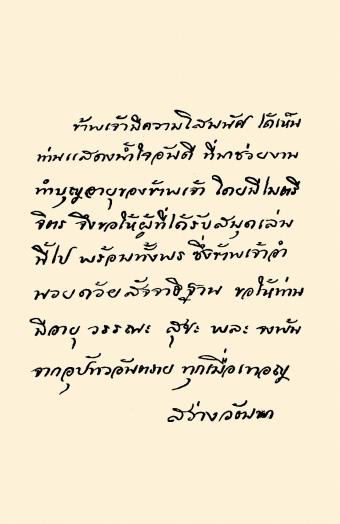 ข้าพเจ้ามีความโสมนัศ ได้เห็น
ท่านแสดงน้ำใจอันดี ที่มาช่วยงาน
ทำบุญอายุของข้าพเจ้า โดยมีไมตรี
จิตร จึงขอให้ผู้ที่ได้รับสมุดเล่ม
นี้ไป พร้อมทั้งพร ซึ่งข้าพเจ้าอำ
นวยด้วยสัจจาธิฐาน ขอให้ท่าน
มีอายุ วรรณะ สุขะ พละ จงพ้น
จากอุปัทวอันตราย ทุกเมื่อเทอญ
สว่างวัฒนา